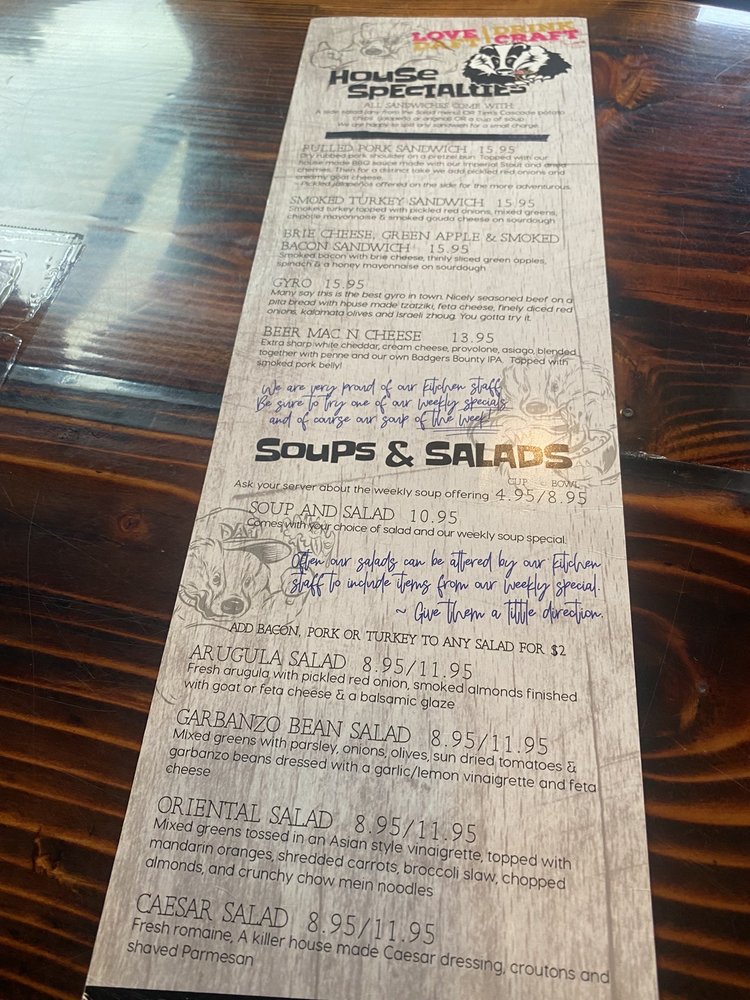 LOVE DRINK
DAFT CRAFT
HOUSE
SPECIALTIES
ALL SANDWICHES COME WITH:
A side salad (any from the Salad menu) OR Tim's Cascade potato
chips (jalapeño or original) OR a cup of soup.
We are happy to split any sandwich for a small charge.
PULLED PORK SANDWICH 15.95
Dry rubbed pork shoulder on a pretzel bun. Topped with our
house made BBQ sauce made with our Imperial Stout and dried
cherries. Then for a distinct take we add pickled red onions and
creamy goat cheese.
~ Pickled jalapeños offered on the side for the more adventurous.
SMOKED TURKEY SANDWICH 15.95
Smoked turkey topped with pickled red onions, mixed greens,
chipotle mayonnaise & smoked gouda cheese on sourdough
BRIE CHEESE, GREEN APPLE & SMOKED
BACON SANDWICH 15.95
Smoked bacon with brie cheese, thinly sliced green apples,
spinach & a honey mayonnaise on sourdough
GYRO 15.95
Many say this is the best gyro in town. Nicely seasoned beef on a
pita bread with house made tzatziki, feta cheese, finely diced red
onions, kalamata olives and Israeli zhoug. You gotta try it.
BEER MAC N CHEESE 13.95
Extra sharp white cheddar, cream cheese, provolone, asiago, blended
together with penne and our own Badgers Bounty IPA. Topped with
smoked pork belly!
We are very proud of our kitchen staff
Be sure to try one of our weekly specials
and of course our soup of the week!
SOUPS & SALADS
CUP BOWL
Ask your server about the weekly soup offering 4.95/8.95
SOUP AND SALAD 10.95
Comes with your choice of salad and our weekly soup special.
Often our salads can be altered by our kitchen
staff to include items from our weekly special.
~ Give them a little direction.
ADD BACON, PORK OR TURKEY TO ANY SALAD FOR $2
ARUGULA SALAD 8.95/11.95
Fresh arugula with pickled red onion, smoked almonds finished
with goat or feta cheese & a balsamic glaze
GARBANZO BEAN SALAD 8.95/11.95
Mixed greens with parsley, onions, olives, sun dried tomatoes &
garbanzo beans dressed with a garlic/lemon vinaigrette and feta
cheese
ORIENTAL SALAD 8.95/11.95
Mixed greens tossed in an Asian style vinaigrette, topped with
mandarin oranges, shredded carrots, broccoli slaw, chopped
almonds, and crunchy chow mein noodles
CAESAR SALAD 8.95/11.95
Fresh romaine, A killer house made Caesar dressing, croutons and
shaved Parmesan